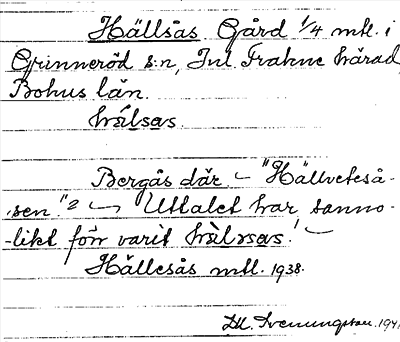 Hällsås Gård 1/4 mtl. i
Grinneröd s:n, Inl. Frakne härad,
Bohus län.
hälsas.
Bergås där ~ "Hällveteså-
sen."? ~ Uttalet har sanno-
-likt förr varit hälsas! ~
Hällesås mtl. 1938.